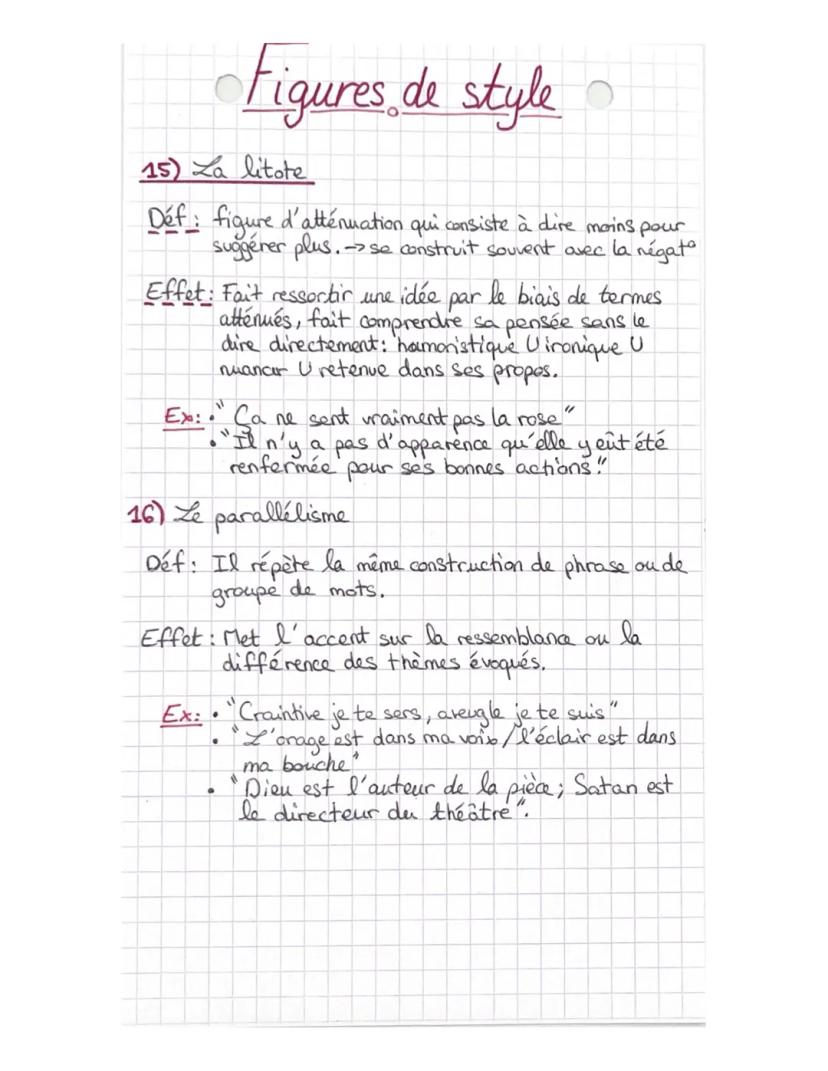 Figures de style
15) La litote
Déf : figure d'atténuation qui consiste à dire moins pour
suggérer plus. → se construit souvent avec la négat°
Effet : Fait ressortir une idée par le biais de termes
atténués, fait comprendre sa pensée sans le
dire directement : humoristique U ironique U
nuancer U retenue dans ses propos.
Ex : • "Ça ne sent vraiment pas la rose"
• "Il n'y a pas d'apparence qu'elle y eût été
renfermée pour ses bonnes actions."
16) Le parallélisme
Déf : Il répète la même construction de phrase ou de
groupe de mots.
Effet : Met l'accent sur la ressemblance ou la
différence des thèmes évoqués.
Ex : • "Craintive je te sers, aveugle je te suis"
• "L'orage est dans ma voix / l'éclair est dans
ma bouche"
• "Dieu est l'auteur de la pièce ; Satan est
le directeur du théâtre".